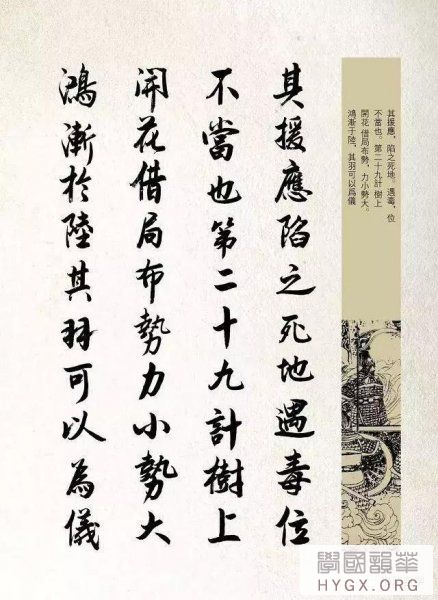 其援應陷之死地遇毒位
不當也第二十九計樹上
開花借局布勢力小勢大
鴻漸於陸其羽可以為儀
其援應，陷之死地。遇毒，位
不當也。第二十九計 樹上
開花 借局布勢，力小勢大。
鴻漸于陸，其羽可以爲儀
學國韻華
HYGX.ORG